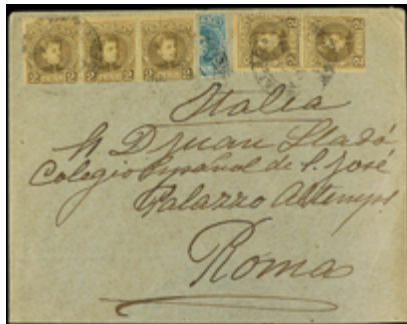 Italia
D Juan Lladó
Colegio Español de S. José
Palazzo Altemps
Roma